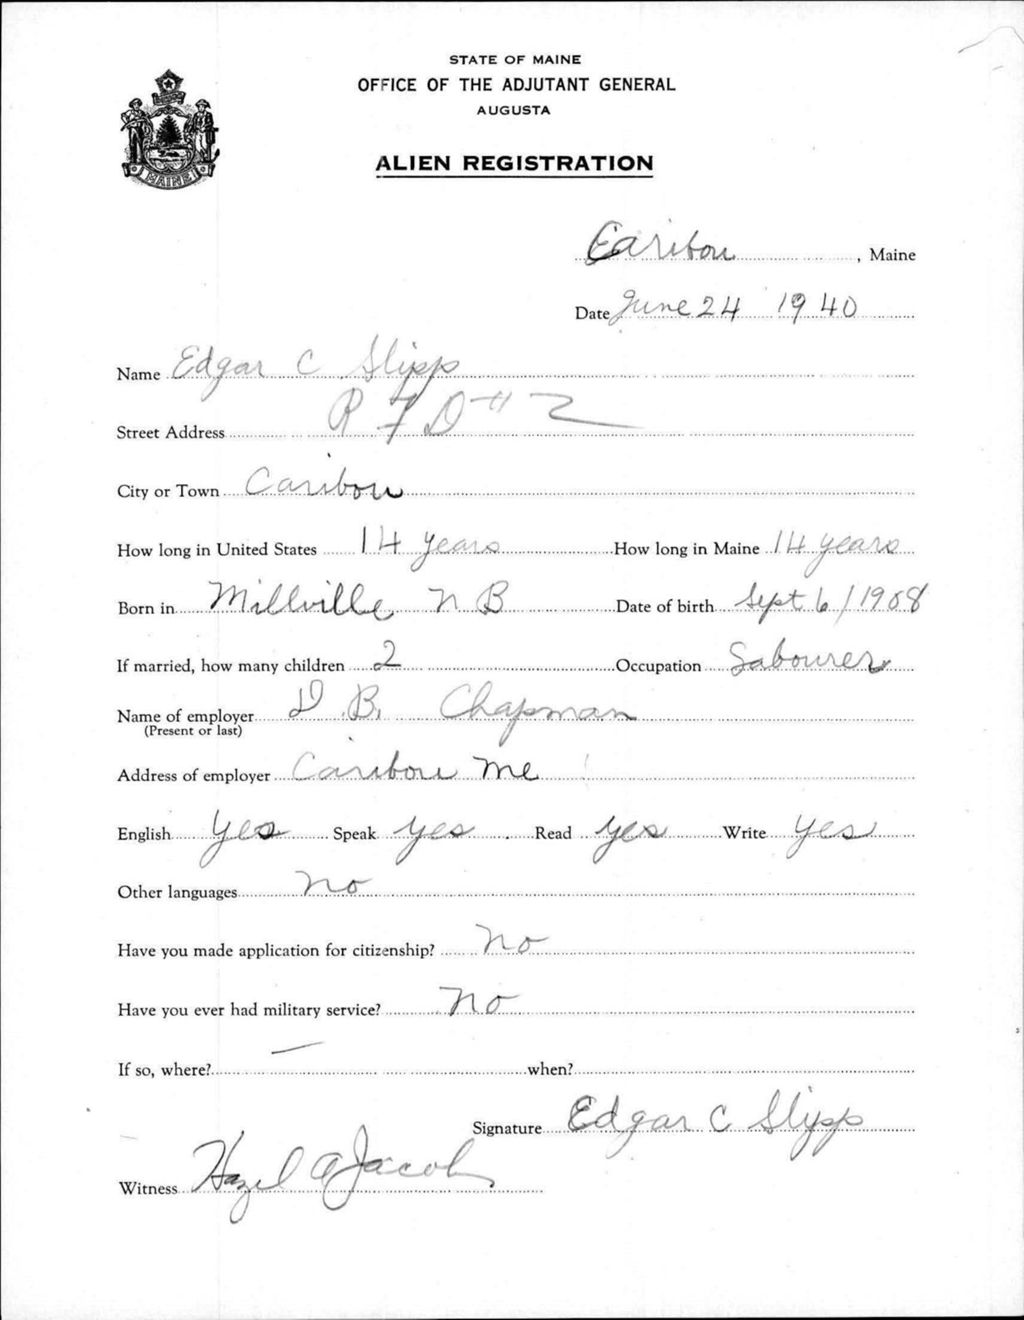 STATE OF MAINE
OFFICE OF THE ADJUTANT GENERAL
AUGUSTA
ALIEN REGISTRATION
MAINE
Caribou, Maine
Date June 24 1940
Name Edgar C Slipp
Street Address R F D # 2
City or Town Caribou
How long in United States 14 years How long in Maine 14 years
Born in Millville N B Date of birth Sept 6/1908
If married, how many children 2 Occupation Labourer
Name of employer D B. Chapman
(Present or last)
Address of employer Caribou Me
English yes Speak yes Read yes Write yes
Other languages no
Have you made application for citizenship? no
Have you ever had military service? no
If so, where? — when?
Signature Edgar C Slipp
Witness Hazel A Jacobs